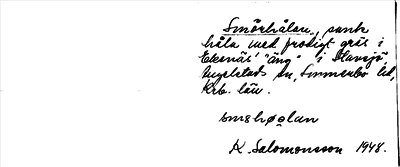 Smörhålan, sank
håla med frodigt gräs i
Ekenäs' "äng" i Slansjö,
Ängelstads sn, Sunnerbo hd,
Krb. län.
smøhǫlan
K. Salomonsson 1948.